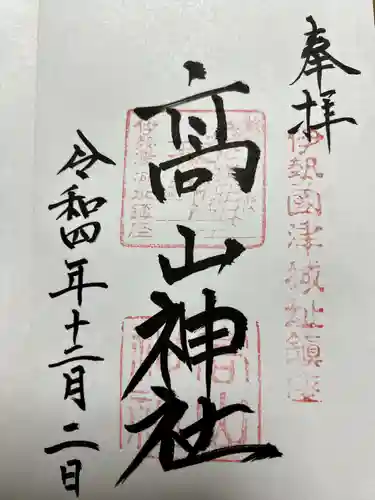 奉拝
伊勢國津城址鎮座
高山神社
令和四年十二月二日